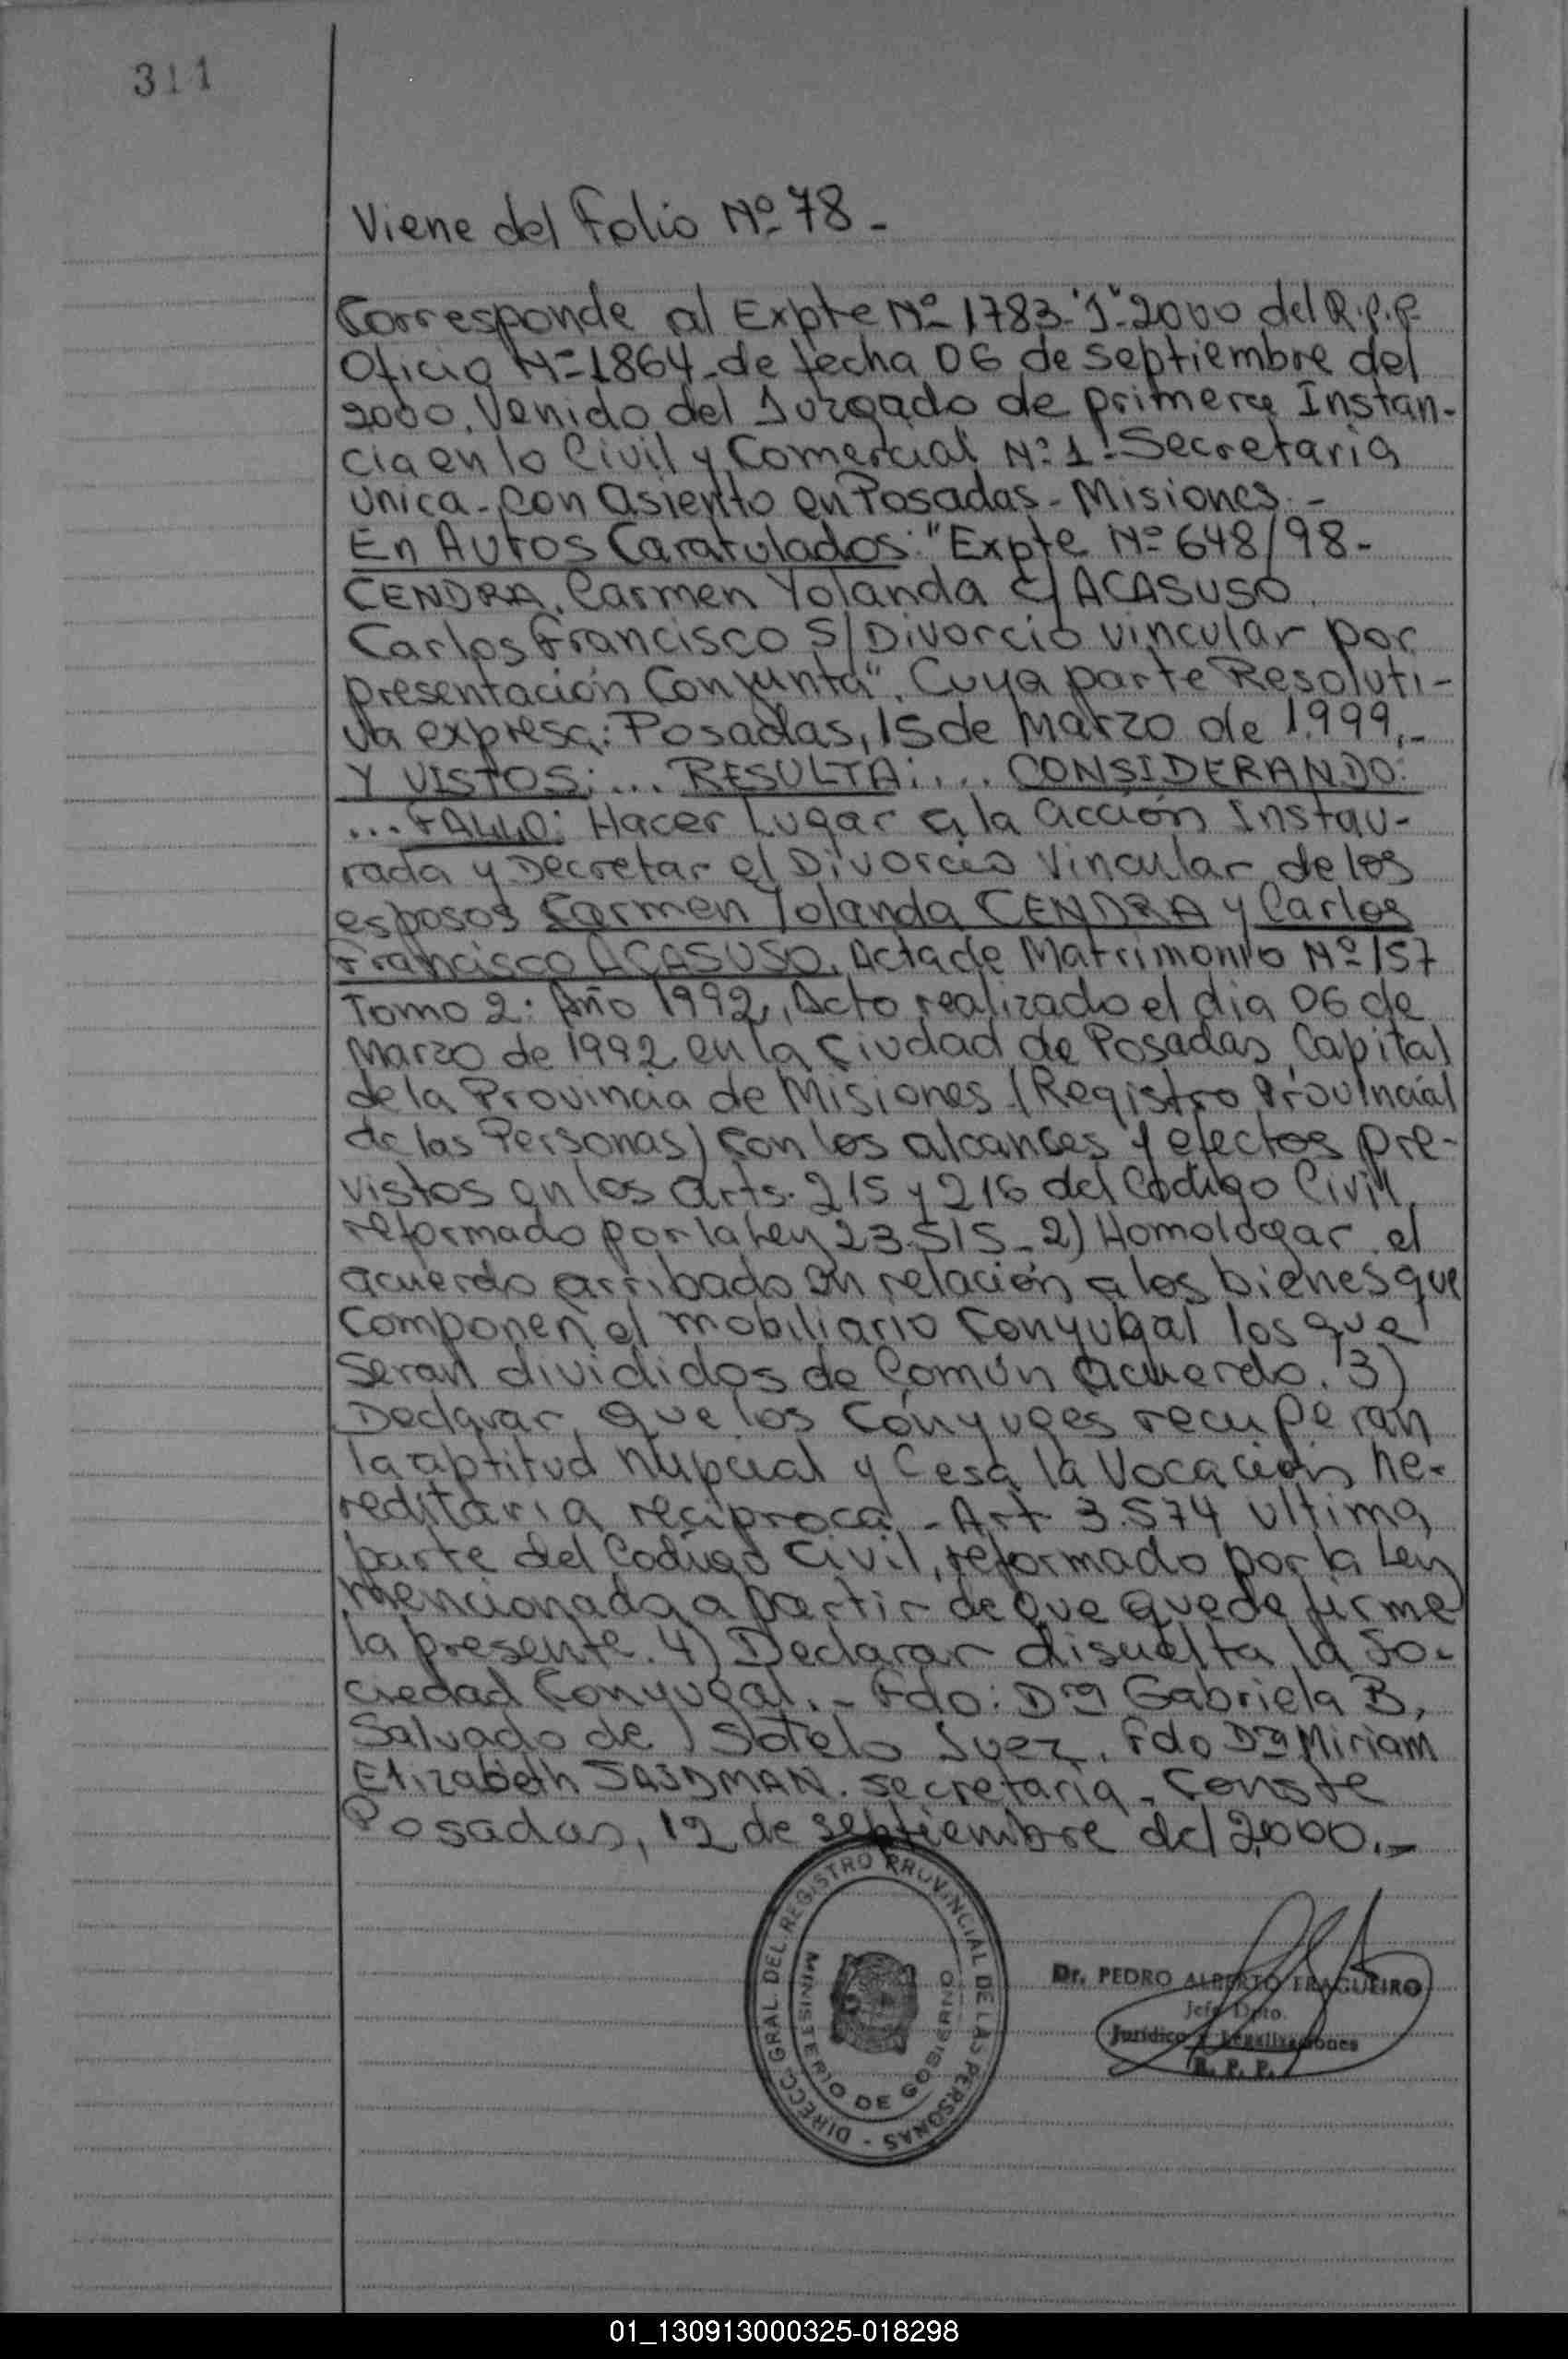 311
Viene del Folio Nº 78-
Corresponde al Expte Nº 1783-"J"-2000 del R.P.P.
Oficio Nº 1864-de fecha 06 de septiembre del
2000. Venido del Juzgado de primera Instan-
cia en lo Civil y Comercial Nº 1-Secretaria
Unica-con asiento en Posadas-Misiones.-
En Autos Caratulados: "Expte Nº 648/98-
CENDRA, Carmen Yolanda c/ ACASUSO,
Carlos Francisco S/Divorcio vincular por
presentación Conjunta". Cuya parte Resoluti-
va expresa: Posadas, 15 de Marzo de 1.999,-
Y VISTOS:... RESULTA:... CONSIDERANDO:
...FALLO: Hacer Lugar a la acción Instau-
rada y Decretar el Divorcio Vincular de los
esposos Carmen Yolanda CENDRA y Carlos
Francisco ACASUSO, Acta de Matrimonio Nº 157
Tomo 2: Año 1992, Acto realizado el dia 06 de
Marzo de 1992 en la Ciudad de Posadas, Capital
de la Provincia de Misiones (Registro Provincial
de las Personas) con los alcances y efectos pre-
vistos en los arts. 215 y 216 del Codigo Civil,
reformado por la Ley 23.515-2) Homologar el
acuerdo arribado en relación a los bienes que
componen el mobiliario Conyugal los que
seran divididos de Común acuerdo. 3)
Declarar que los Cónyuges recuperan
la aptitud nupcial y Cesa la Vocación he-
reditaria reciproca,-Art 3.574 ultima
parte del Codigo Civil, reformado por la Ley
mencionada a partir de que quede firme
la presente. 4) Declarar disuelta la So-
ciedad Conyugal.-Fdo: Dra Gabriela B,
Salvado de Sotelo Juez. Fdo Dra Miriam
Elizabeth SAJDMAN. secretaria-Conste
Posadas, 12 de septiembre del 2,000.-
DIRECC. GRAL. DEL REGISTRO PROVINCIAL DE LAS PERSONAS -
MINISTERIO DE GOBIERNO
Dr. PEDRO ALBERTO FRAGUEIRO
Jefe Dpto.
Jurídico y Legalizaciones
R. P. P.
01_130913000325-018298